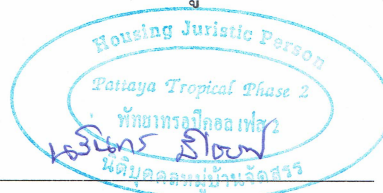 Housing Juristic Person
Pattaya Tropical Phase 2
พัทยาทรอปิคอล เฟส 2
นิติบุคคลหมู่บ้านจัดสรร